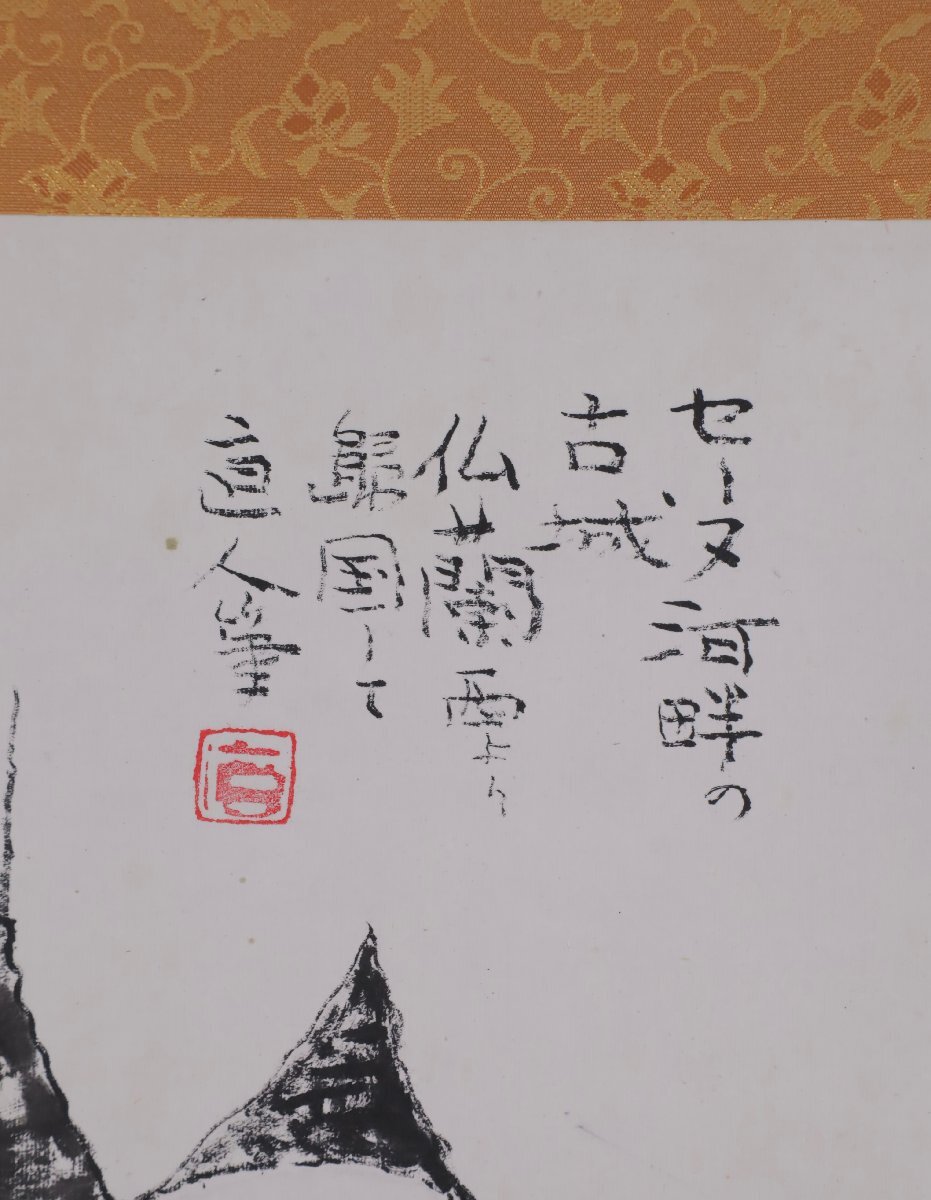 セーヌ河畔の
古城
仏蘭西より
歸国して
直人筆